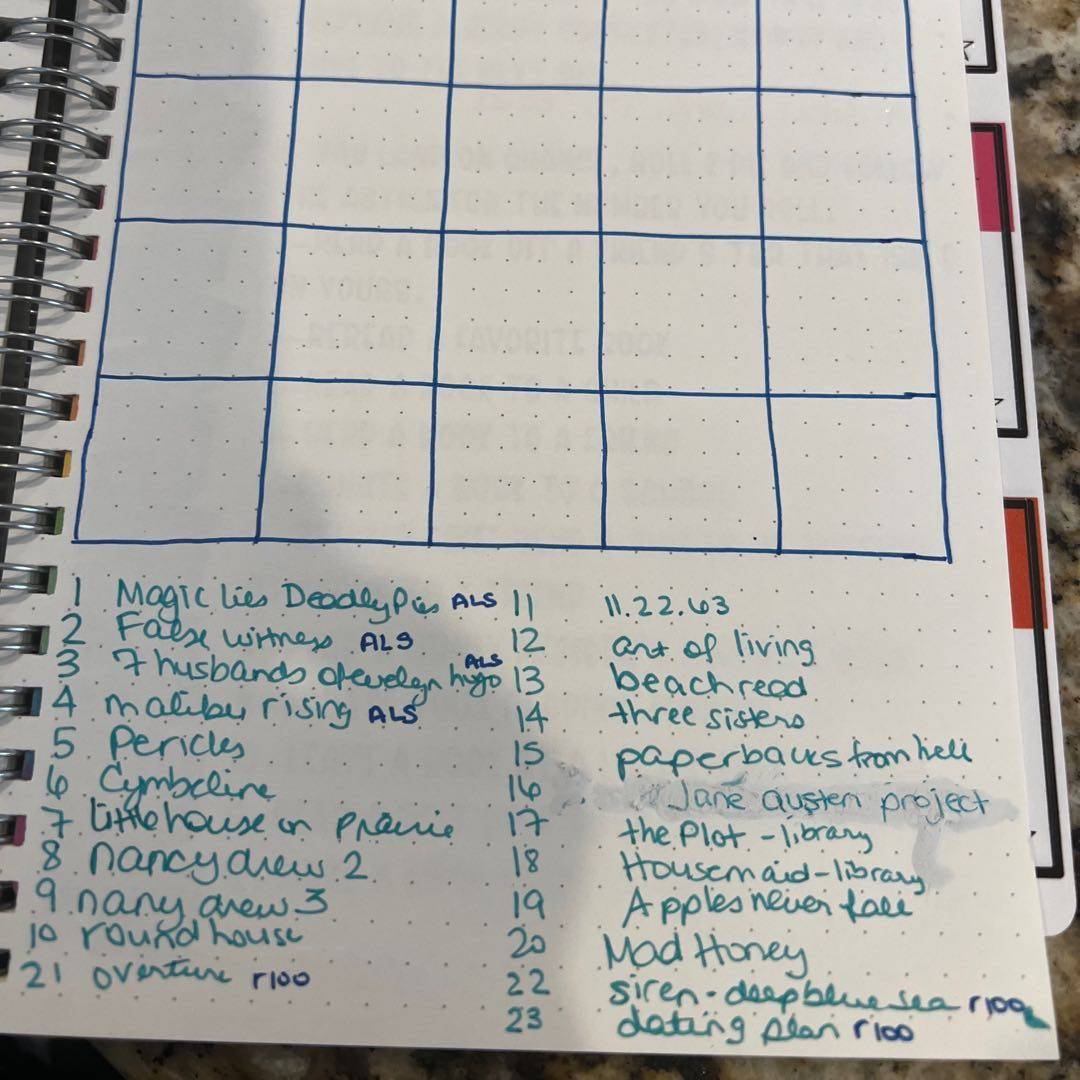 1 Magic Lies Deadly Pies ALS
2 False witness ALS
3 7 husbands of evelyn hugo ALS
4 malibu rising ALS
5 Pericles
6 Cymbeline
7 little house on prairie
8 nancy drew 2
9 nany drew 3
10 round house
21 overture r100
11 11.22.63
12 art of living
13 beach read
14 three sisters
15 paperbacks from hell
16 Jane austen project
17 the Plot - library
18 Housemaid - library
19 Apples never fall
20 Mad Honey
22 siren - deep blue sea r100
23 dating plan r100